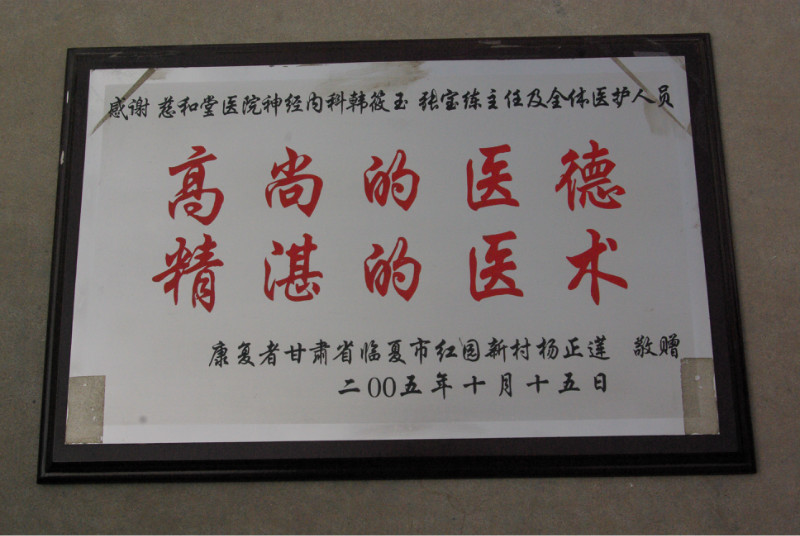 感谢 慈和堂医院神经内科韩筱玉 张宝练主任及全体医护人员
高尚的医德
精湛的医术
康复者甘肃省临夏市红园新村杨正莲 敬赠
二00五年十月十五日